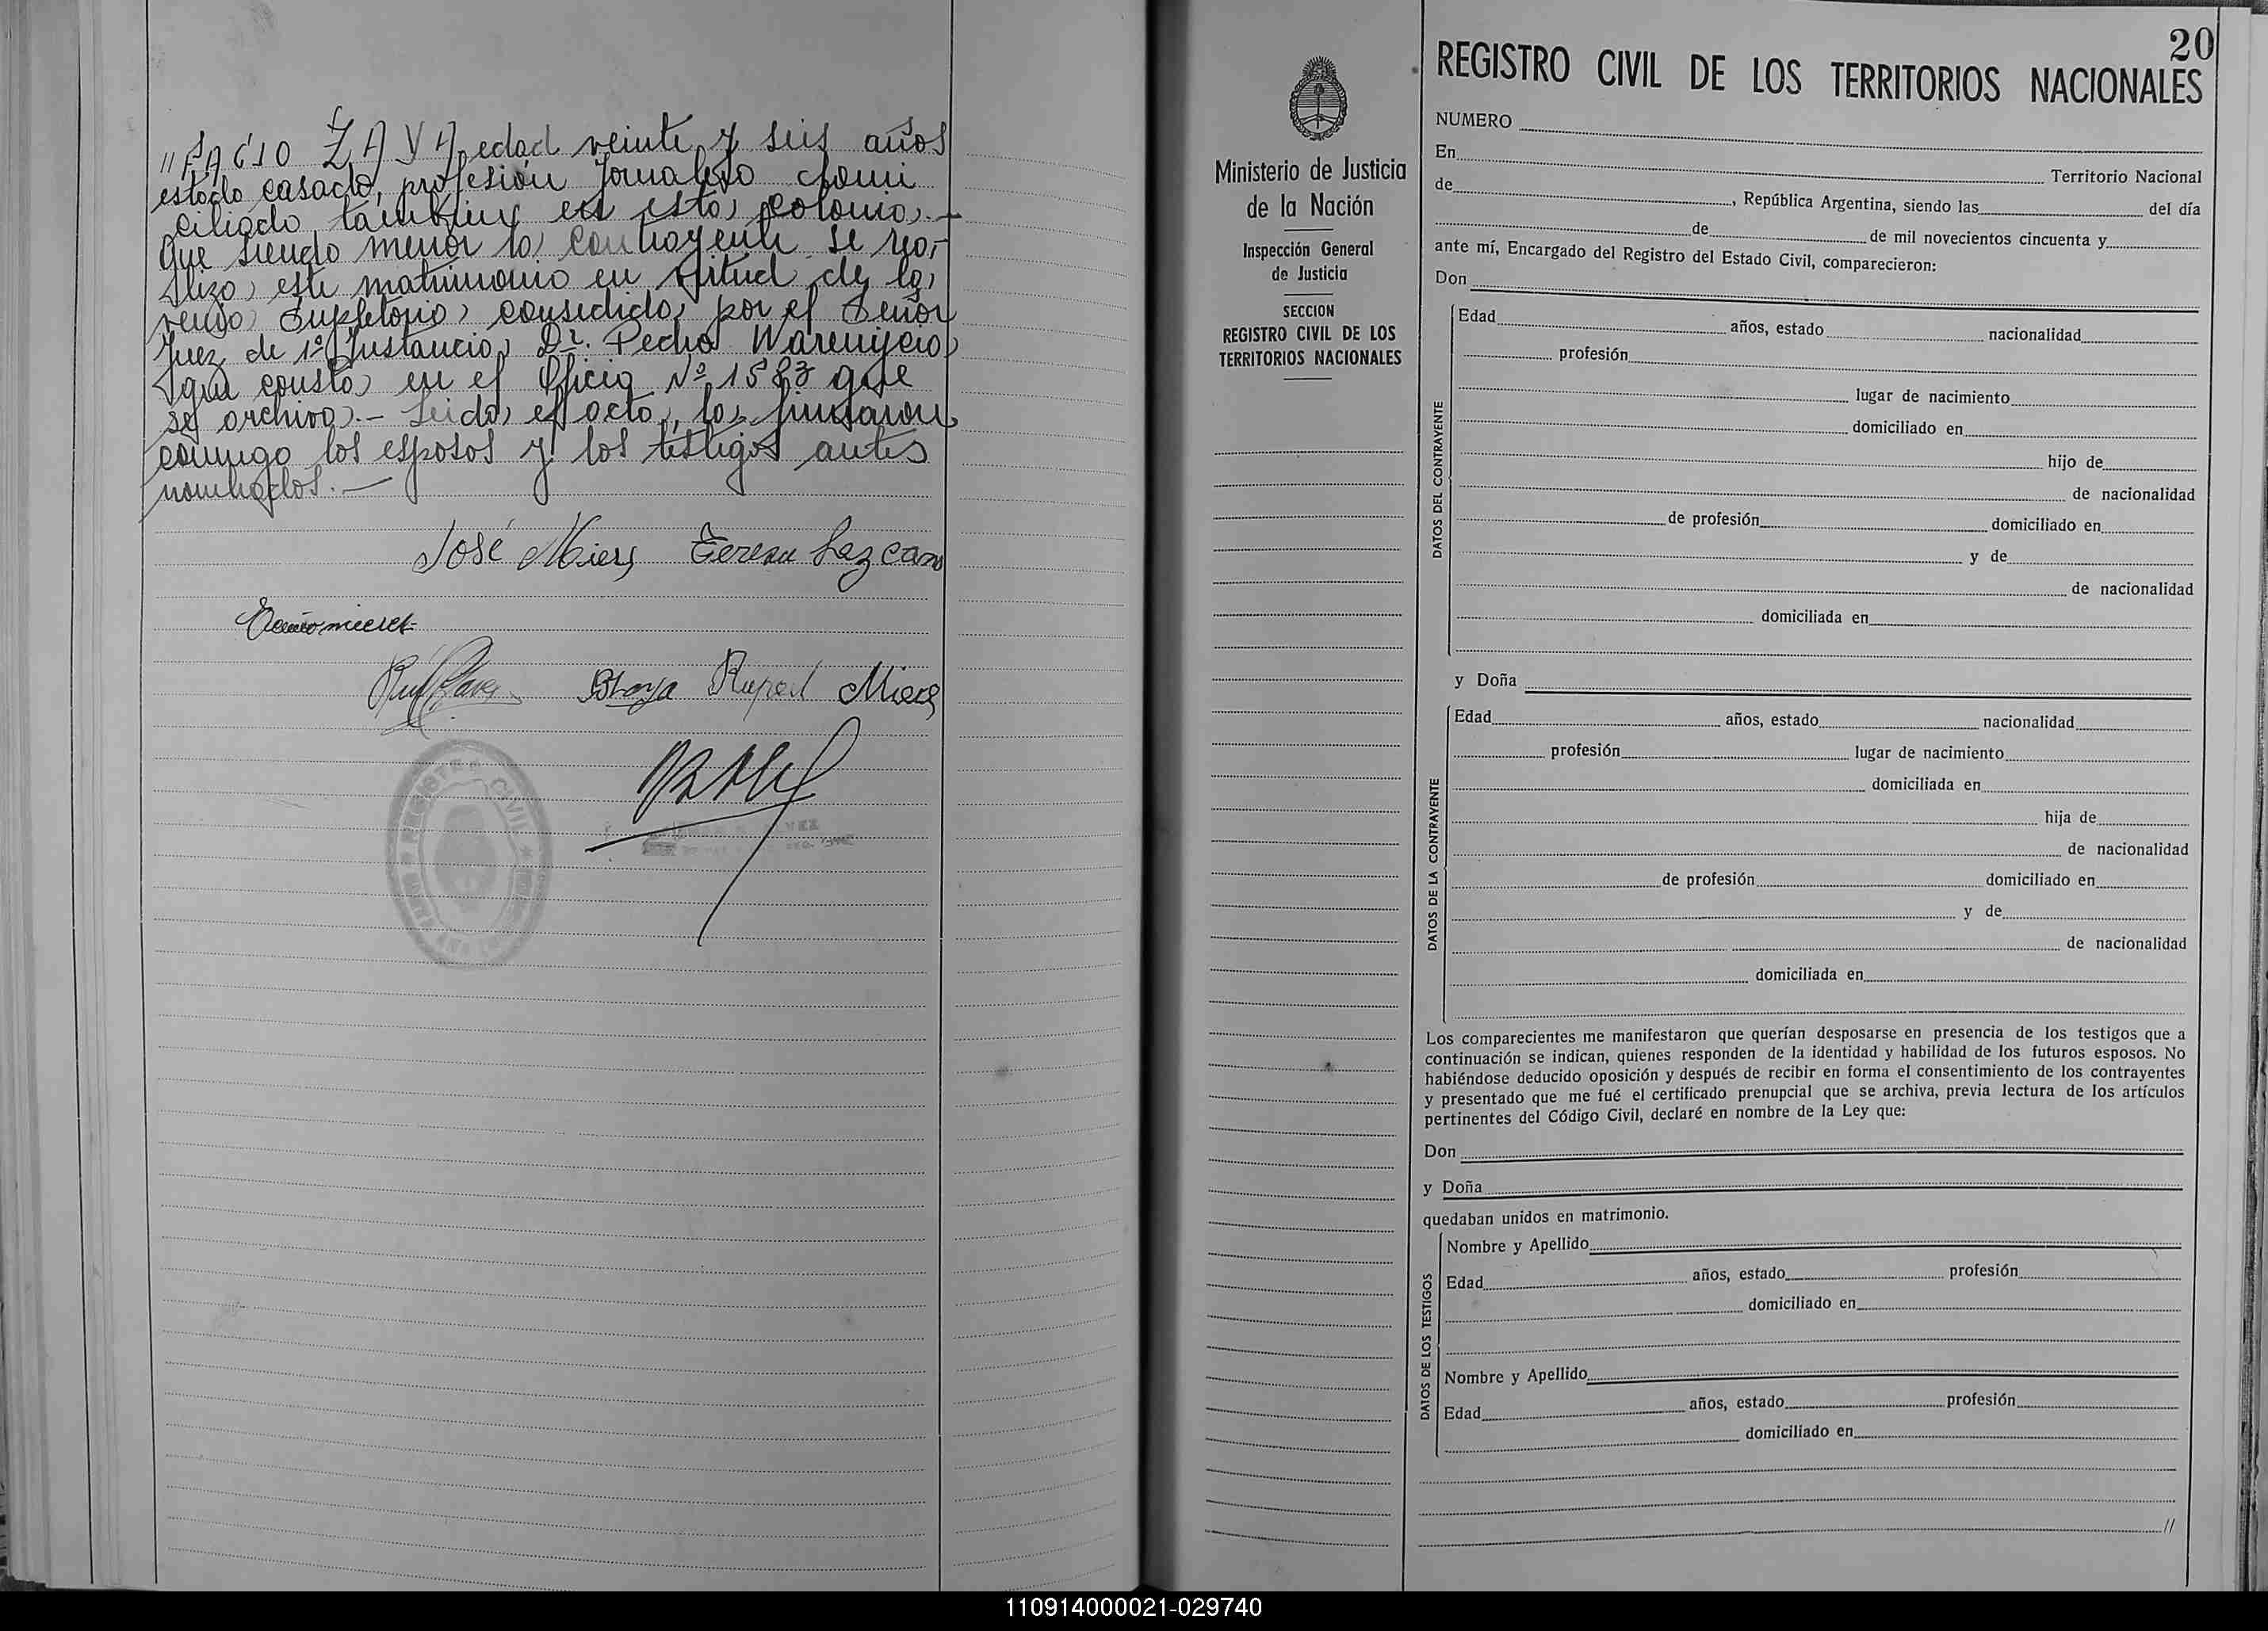 edad veinte y seis años
estado casado, profesión Jornalero domi
ciliado también en esta colonia.—
Que siendo menor la contrayente se rea-
lizo este matrimonio en virtud de la
venia supletoria consedida por el Señor
Juez de 1º Instancia Dr. Pedro
que consta en el Oficio Nº 1583 que
se archiva.- Leida el acta, la firmaron
conmigo los esposos y los testigos antes
nombrados.—
José Mieres Teresa Lezcano
Rupert Mieres
20
REGISTRO CIVIL DE LOS TERRITORIOS NACIONALES
Ministerio de Justicia
de la Nación
Inspección General
de Justicia
SECCION
REGISTRO CIVIL DE LOS
TERRITORIOS NACIONALES
NUMERO
En Territorio Nacional
de , República Argentina, siendo las del día
de de mil novecientos cincuenta y
ante mí, Encargado del Registro del Estado Civil, comparecieron:
Don
DATOS DEL CONTRAYENTE
Edad años, estado nacionalidad
profesión
lugar de nacimiento
domiciliado en
hijo de
de nacionalidad
de profesión domiciliado en
y de
de nacionalidad
domiciliada en
y Doña
DATOS DE LA CONTRAYENTE
Edad años, estado nacionalidad
profesión lugar de nacimiento
domiciliada en
hija de
de nacionalidad
de profesión domiciliado en
y de
de nacionalidad
domiciliada en
Los comparecientes me manifestaron que querían desposarse en presencia de los testigos que a
continuación se indican, quienes responden de la identidad y habilidad de los futuros esposos. No
habiéndose deducido oposición y después de recibir en forma el consentimiento de los contrayentes
y presentado que me fué el certificado prenupcial que se archiva, previa lectura de los artículos
pertinentes del Código Civil, declaré en nombre de la Ley que:
Don
y Doña
quedaban unidos en matrimonio.
DATOS DE LOS TESTIGOS
Nombre y Apellido
Edad años, estado profesión
domiciliado en
Nombre y Apellido
Edad años, estado profesión
domiciliado en
//
110914000021-029740